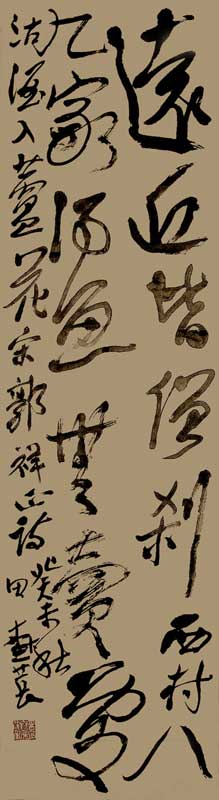 遠近皆僧刹西村八
九家得魚無賣處
沽酒入蘆花宋郭祥正詩
癸未秋
田樹萇